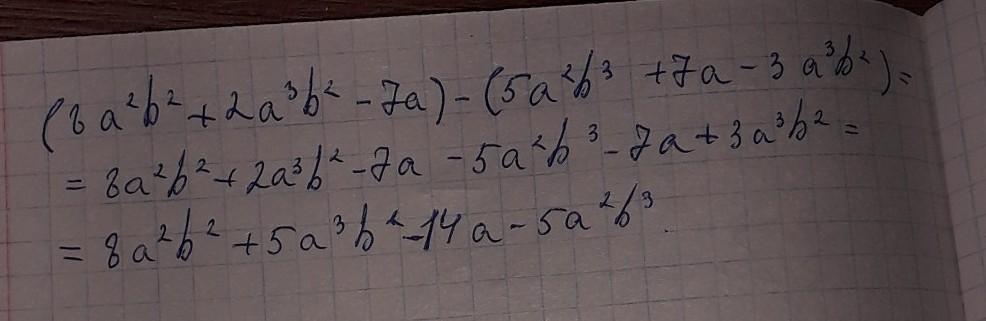 (8a²b² + 2a³b² - 7a) - (5a²b³ + 7a - 3a³b²) =
= 8a²b² + 2a³b² - 7a - 5a²b³ - 7a + 3a³b² =
= 8a²b² + 5a³b² - 14a - 5a²b³.